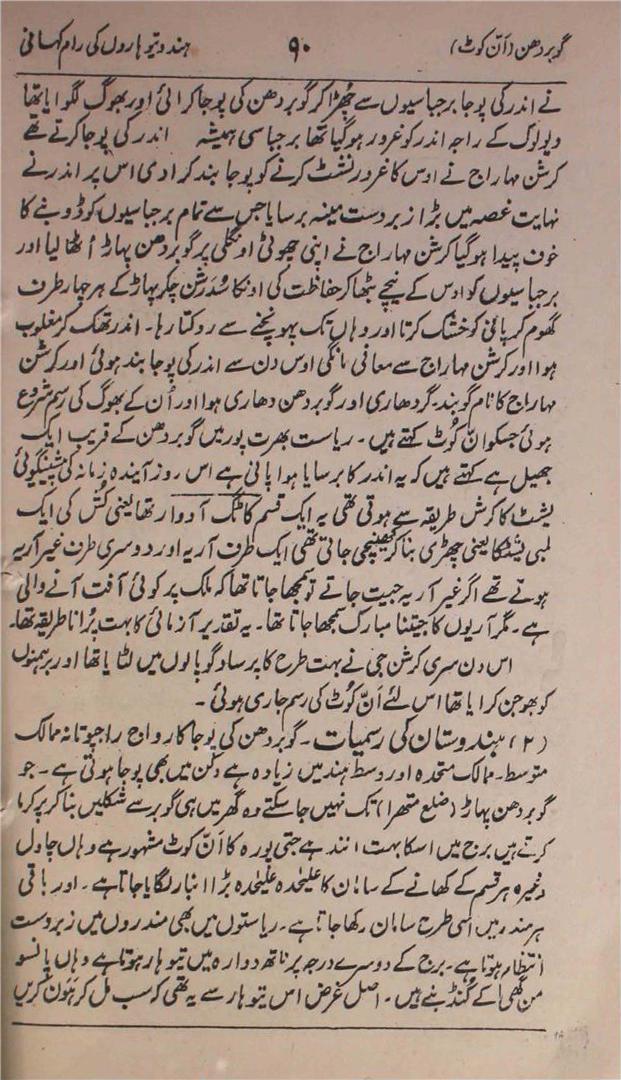 گوبردھن (اَنّ کوٹ) ۹۰ ہندو تیوہاروں کی رام کہانی
نے اندر کی پوجا برجباسیوں سے چُھڑا کر گوبردھن کی پوجا کرائی اور بھوگ لگوایا تھا
دیولوک کے راجہ اندر کو غرور ہوگیا تھا برجباسی ہمیشہ اندر کی پوجا کرتے تھے
کرشن مہاراج نے اوس کا غرور نشٹ کرنے کو پوجا بند کرا دی اس پر اندر نے
نہایت غصہ میں بڑا زبردست مینہ برسایا جس سے تمام برجباسیوں کو ڈوبنے کا
خوف پیدا ہوگیا کرشن مہاراج نے اپنی چھوٹی اونگلی پر گوبردھن پہاڑ اُٹھا لیا اور
برجباسیوں کو اوس کے نیچے بٹھا کر حفاظت کی اونکا سُدرشن چکر پہاڑ کے ہر چہار طرف
گھوم کر پانی کو خشک کرتا اور وہاں تک پہونچنے سے روکتا رہا۔ اندر تھک کر مغلوب
ہوا اور کرشن مہاراج سے معافی مانگی اوس دن سے اندر کی پوجا بند ہوئی اور کرشن
مہاراج کا نام گوبند۔ گردھاری اور گوبردھن دھاری ہوا اور اُن کے بھوگ کی رسم شروع
ہوئی جسکو انّ کُوٹ کہتے ہیں۔ ریاست بھرت پور میں گوبردھن کے قریب ایک
جھیل ہے کہتے ہیں کہ یہ اندر کا برسایا ہوا پانی ہے اس روز آیندہ زمانہ کی پیشینگوئی
یشٹ کا کرش طریقہ سے ہوتی تھی یہ ایک قسم کا ٹگ آدوار تھا یعنی کُش کی ایک
لمبی یشٹکا یعنی چھڑی بنا کر کھینچی جاتی تھی ایک طرف آریہ اور دوسری طرف غیر آریہ
ہوتے تھے اگر غیر آریہ جیت جاتے تو سمجھا جاتا تھا کہ ملک پر کوئی آفت آنے والی
ہے۔ مگر آریوں کا جیتنا مبارک سمجھا جاتا تھا۔ یہ تقدیر آزمائی کا بہت پُرانا طریقہ تھا۔
اس دن سری کرشن جی نے بہت طرح کا پرساد گوپالوں میں لٹایا تھا اور برہمنوں
کو بھوجن کرایا تھا اس لئے اَنّ کُوٹ کی رسم جاری ہوئی۔
(۲) ہندوستان کی رسمیات۔ گوبردھن کی پوجا کا رواج راجپوتانہ ممالک
متوسط۔ ممالک متحدہ اور وسط ہند میں زیادہ ہے دکن میں بھی پوجا ہوتی ہے۔ جو
گوبردھن پہاڑ (ضلع متھرا) تک نہیں جا سکتے وہ گھر میں ہی گوبر سے شکلیں بنا کر پرکرما
کرتے ہیں برج میں اسکا بہت انند ہے جتی پورہ کا اَنّ کوٹ مشہور ہے وہاں چاول
وغیرہ ہر قسم کے کھانے کے سامان کا علیٰحدہ علیٰحدہ بڑا انبار لگایا جاتا ہے۔ اور باقی
ہر مندر میں اسی طرح سامان رکھا جاتا ہے۔ ریاستوں میں بھی مندروں میں زبردست
انتظام ہوتا ہے۔ برج کے دوسرے درجہ پر ناتھ دوارہ میں تیوہار ہوتا ہے وہاں پانسو
من گھی کے کُنڈ بنے ہیں۔ اصل غرض اس تیوہار سے یہ تھی کہ سب مل کر ہَون کریں